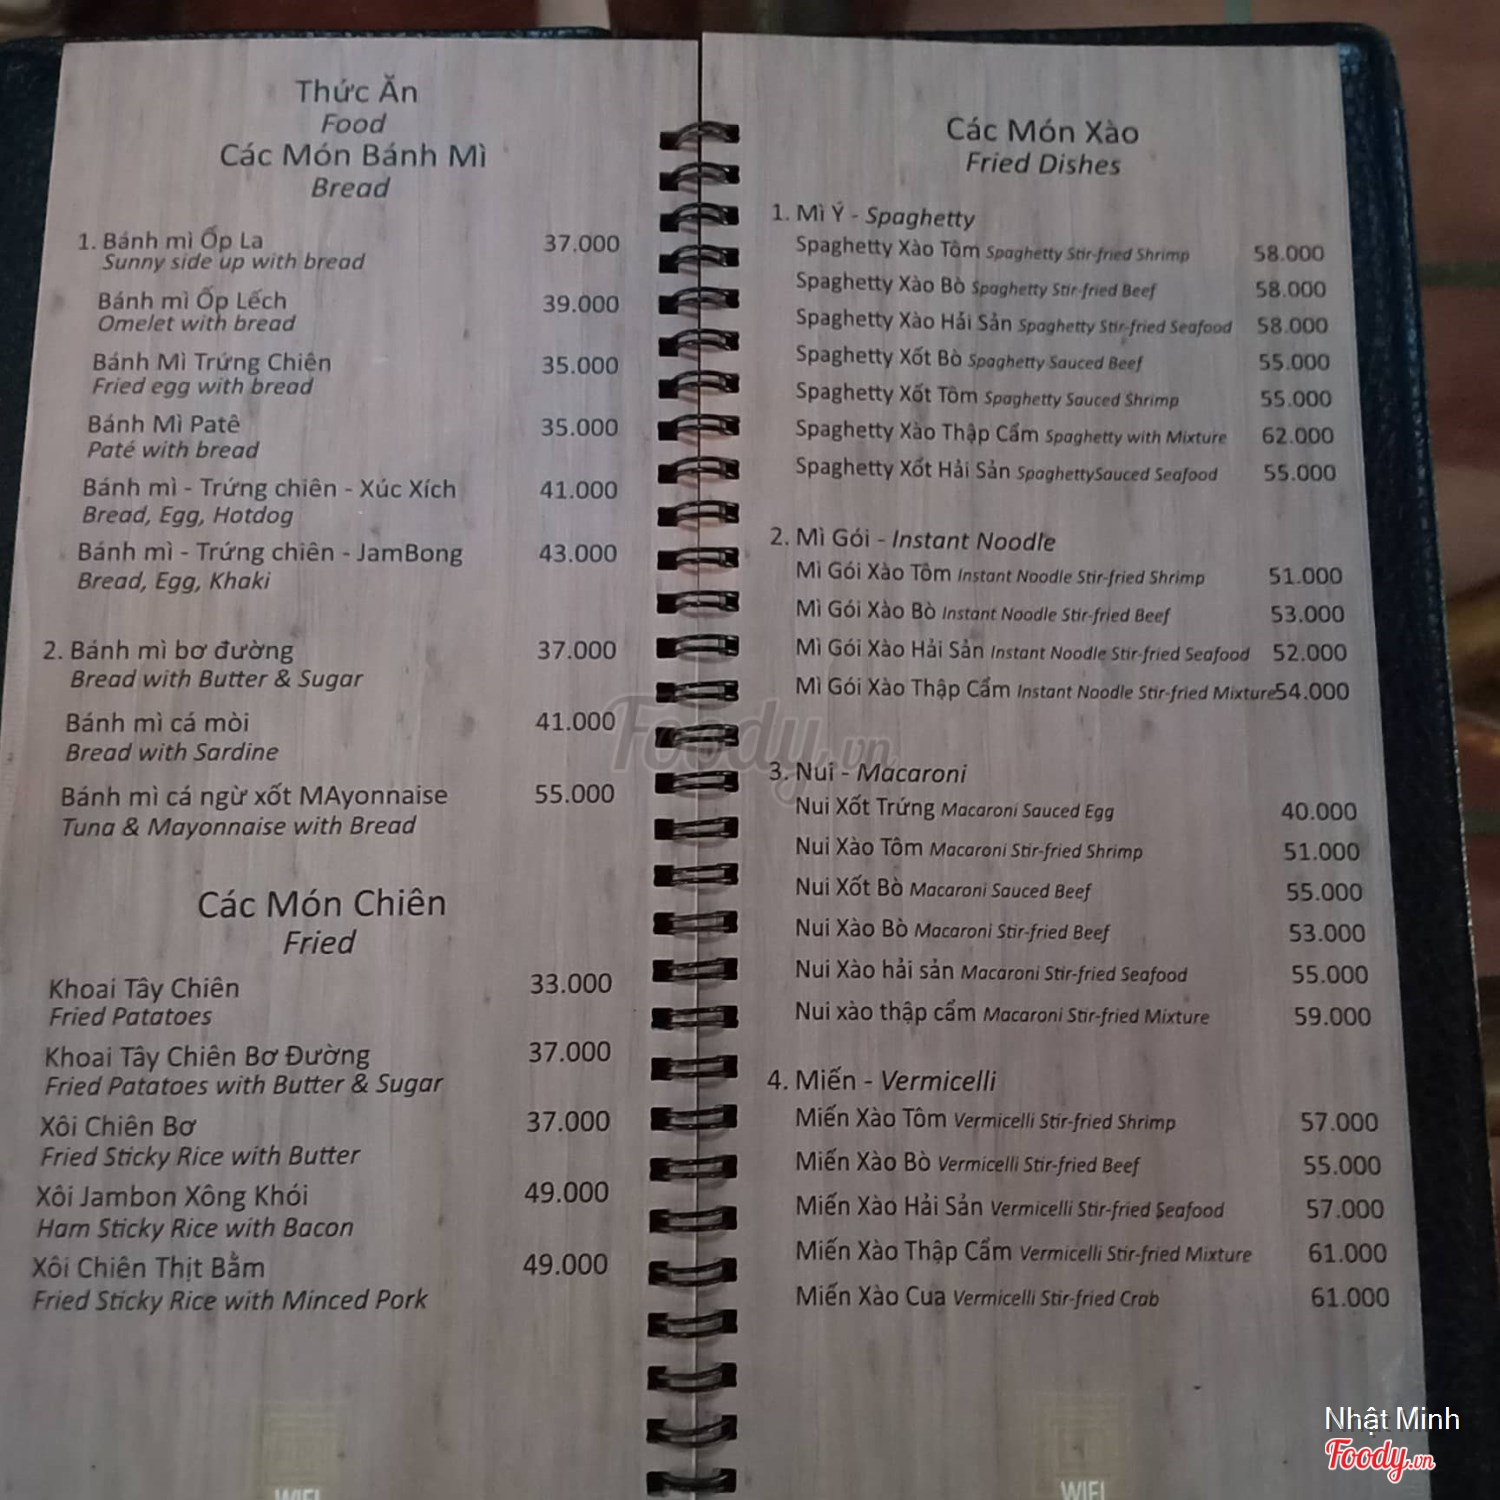 Thức Ăn
Food
Các Món Bánh Mì
Bread
1. Bánh mì Ốp La 37.000
Sunny side up with bread
Bánh mì Ốp Lếch 39.000
Omelet with bread
Bánh Mì Trứng Chiên 35.000
Fried egg with bread
Bánh Mì Patê 35.000
Paté with bread
Bánh mì - Trứng chiên - Xúc Xích 41.000
Bread, Egg, Hotdog
Bánh mì - Trứng chiên - JamBong 43.000
Bread, Egg, Khaki
2. Bánh mì bơ đường 37.000
Bread with Butter & Sugar
Bánh mì cá mòi 41.000
Bread with Sardine
Bánh mì cá ngừ xốt MAyonnaise 55.000
Tuna & Mayonnaise with Bread
Các Món Chiên
Fried
Khoai Tây Chiên 33.000
Fried Patatoes
Khoai Tây Chiên Bơ Đường 37.000
Fried Patatoes with Butter & Sugar
Xôi Chiên Bơ 37.000
Fried Sticky Rice with Butter
Xôi Jambon Xông Khói 49.000
Ham Sticky Rice with Bacon
Xôi Chiên Thịt Bằm 49.000
Fried Sticky Rice with Minced Pork
WIFI
Các Món Xào
Fried Dishes
1. Mì Ý - Spaghetty
Spaghetty Xào Tôm Spaghetty Stir-fried Shrimp 58.000
Spaghetty Xào Bò Spaghetty Stir-fried Beef 58.000
Spaghetty Xào Hải Sản Spaghetty Stir-fried Seafood 58.000
Spaghetty Xốt Bò Spaghetty Sauced Beef 55.000
Spaghetty Xốt Tôm Spaghetty Sauced Shrimp 55.000
Spaghetty Xào Thập Cẩm Spaghetty with Mixture 62.000
Spaghetty Xốt Hải Sản SpaghettySauced Seafood 55.000
2. Mì Gói - Instant Noodle
Mì Gói Xào Tôm Instant Noodle Stir-fried Shrimp 51.000
Mì Gói Xào Bò Instant Noodle Stir-fried Beef 53.000
Mì Gói Xào Hải Sản Instant Noodle Stir-fried Seafood 52.000
Mì Gói Xào Thập Cẩm Instant Noodle Stir-fried Mixture 54.000
3. Nui - Macaroni
Nui Xốt Trứng Macaroni Sauced Egg 40.000
Nui Xào Tôm Macaroni Stir-fried Shrimp 51.000
Nui Xốt Bò Macaroni Sauced Beef 55.000
Nui Xào Bò Macaroni Stir-fried Beef 53.000
Nui Xào hải sản Macaroni Stir-fried Seafood 55.000
Nui xào thập cẩm Macaroni Stir-fried Mixture 59.000
4. Miến - Vermicelli
Miến Xào Tôm Vermicelli Stir-fried Shrimp 57.000
Miến Xào Bò Vermicelli Stir-fried Beef 55.000
Miến Xào Hải Sản Vermicelli Stir-fried Seafood 57.000
Miến Xào Thập Cẩm Vermicelli Stir-fried Mixture 61.000
Miến Xào Cua Vermicelli Stir-fried Crab 61.000
WIFI
Foody.vn
Nhật Minh
Foody.vn